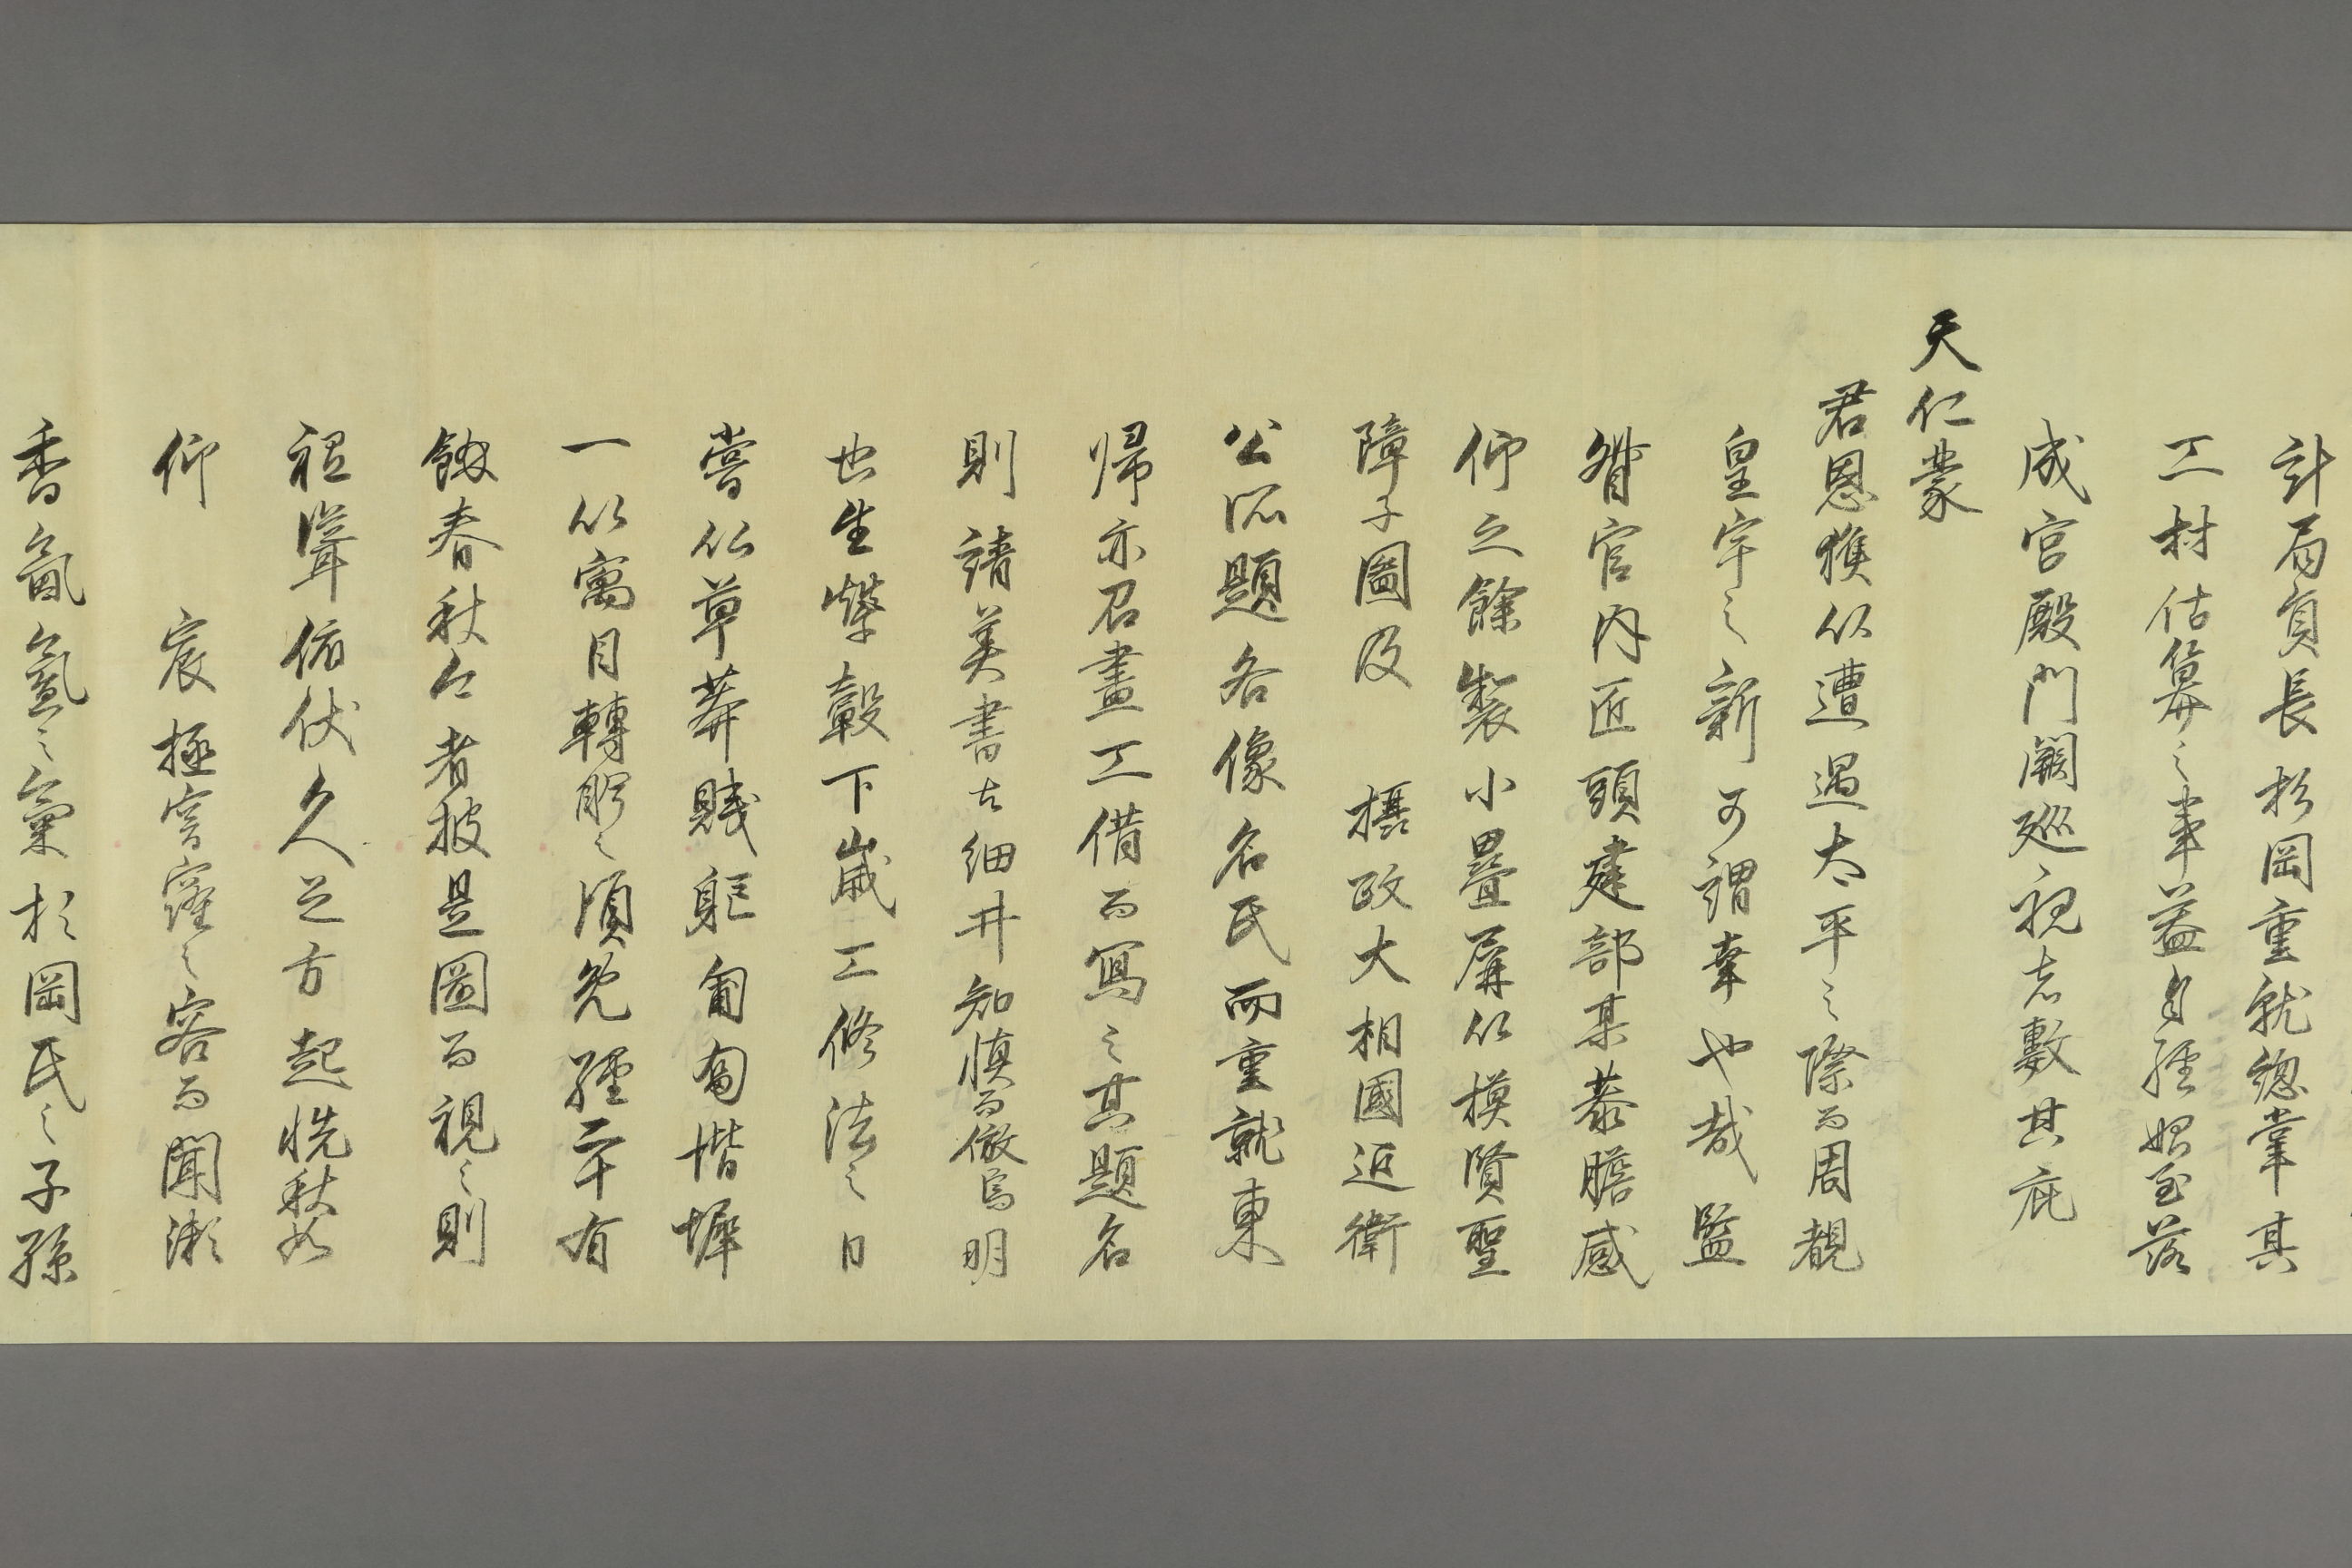 計局負長杉岡重就總掌其
工村估算之事益自經始至落
成宮殿門闕廵視志數其庇
天仁蒙
君恩獲以遭遇太平之際而周覩
皇宇之新可謂幸也哉監
督官内匠頭建部某恭瞻感
仰之餘製小疊屏以模賢聖
障子圖及 攝政大相國近衛
公所題各像名氏而重就東
帰亦召畫工借而寫之其題名
則請美書士細井知慎而倣焉明
也生輦轂下歲工修法之日
嘗以草莽賤軀匍匐堦墀
一以寓目轉眄之須免經二十有
餘春秋今者披是圖而視之則
祖聳俯伏久之方起恍秋如
仰 宸極窅窿之容而聞漸
香氤氳之氣於岡氏之子孫